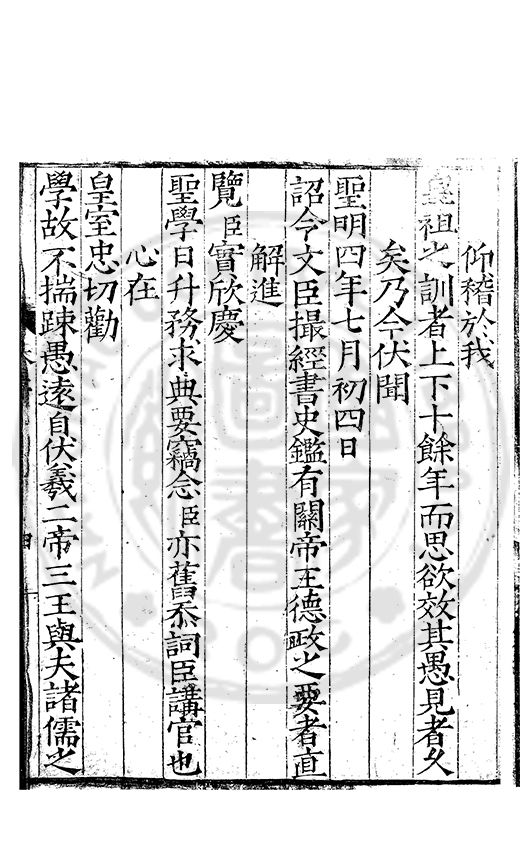 仰稽於我
皇祖之訓者上下十餘年而思欲效其愚見者久
矣乃今伏聞
聖明四年七月初四日
詔令文臣撮經書史鑑有關帝王德政之要者直
解進
覽臣實欣慶
聖學日升務求典要竊念臣亦舊忝詞臣講官也
心在
皇室忠切勸
學故不揣踈愚遠自伏羲二帝三王與夫諸儒之